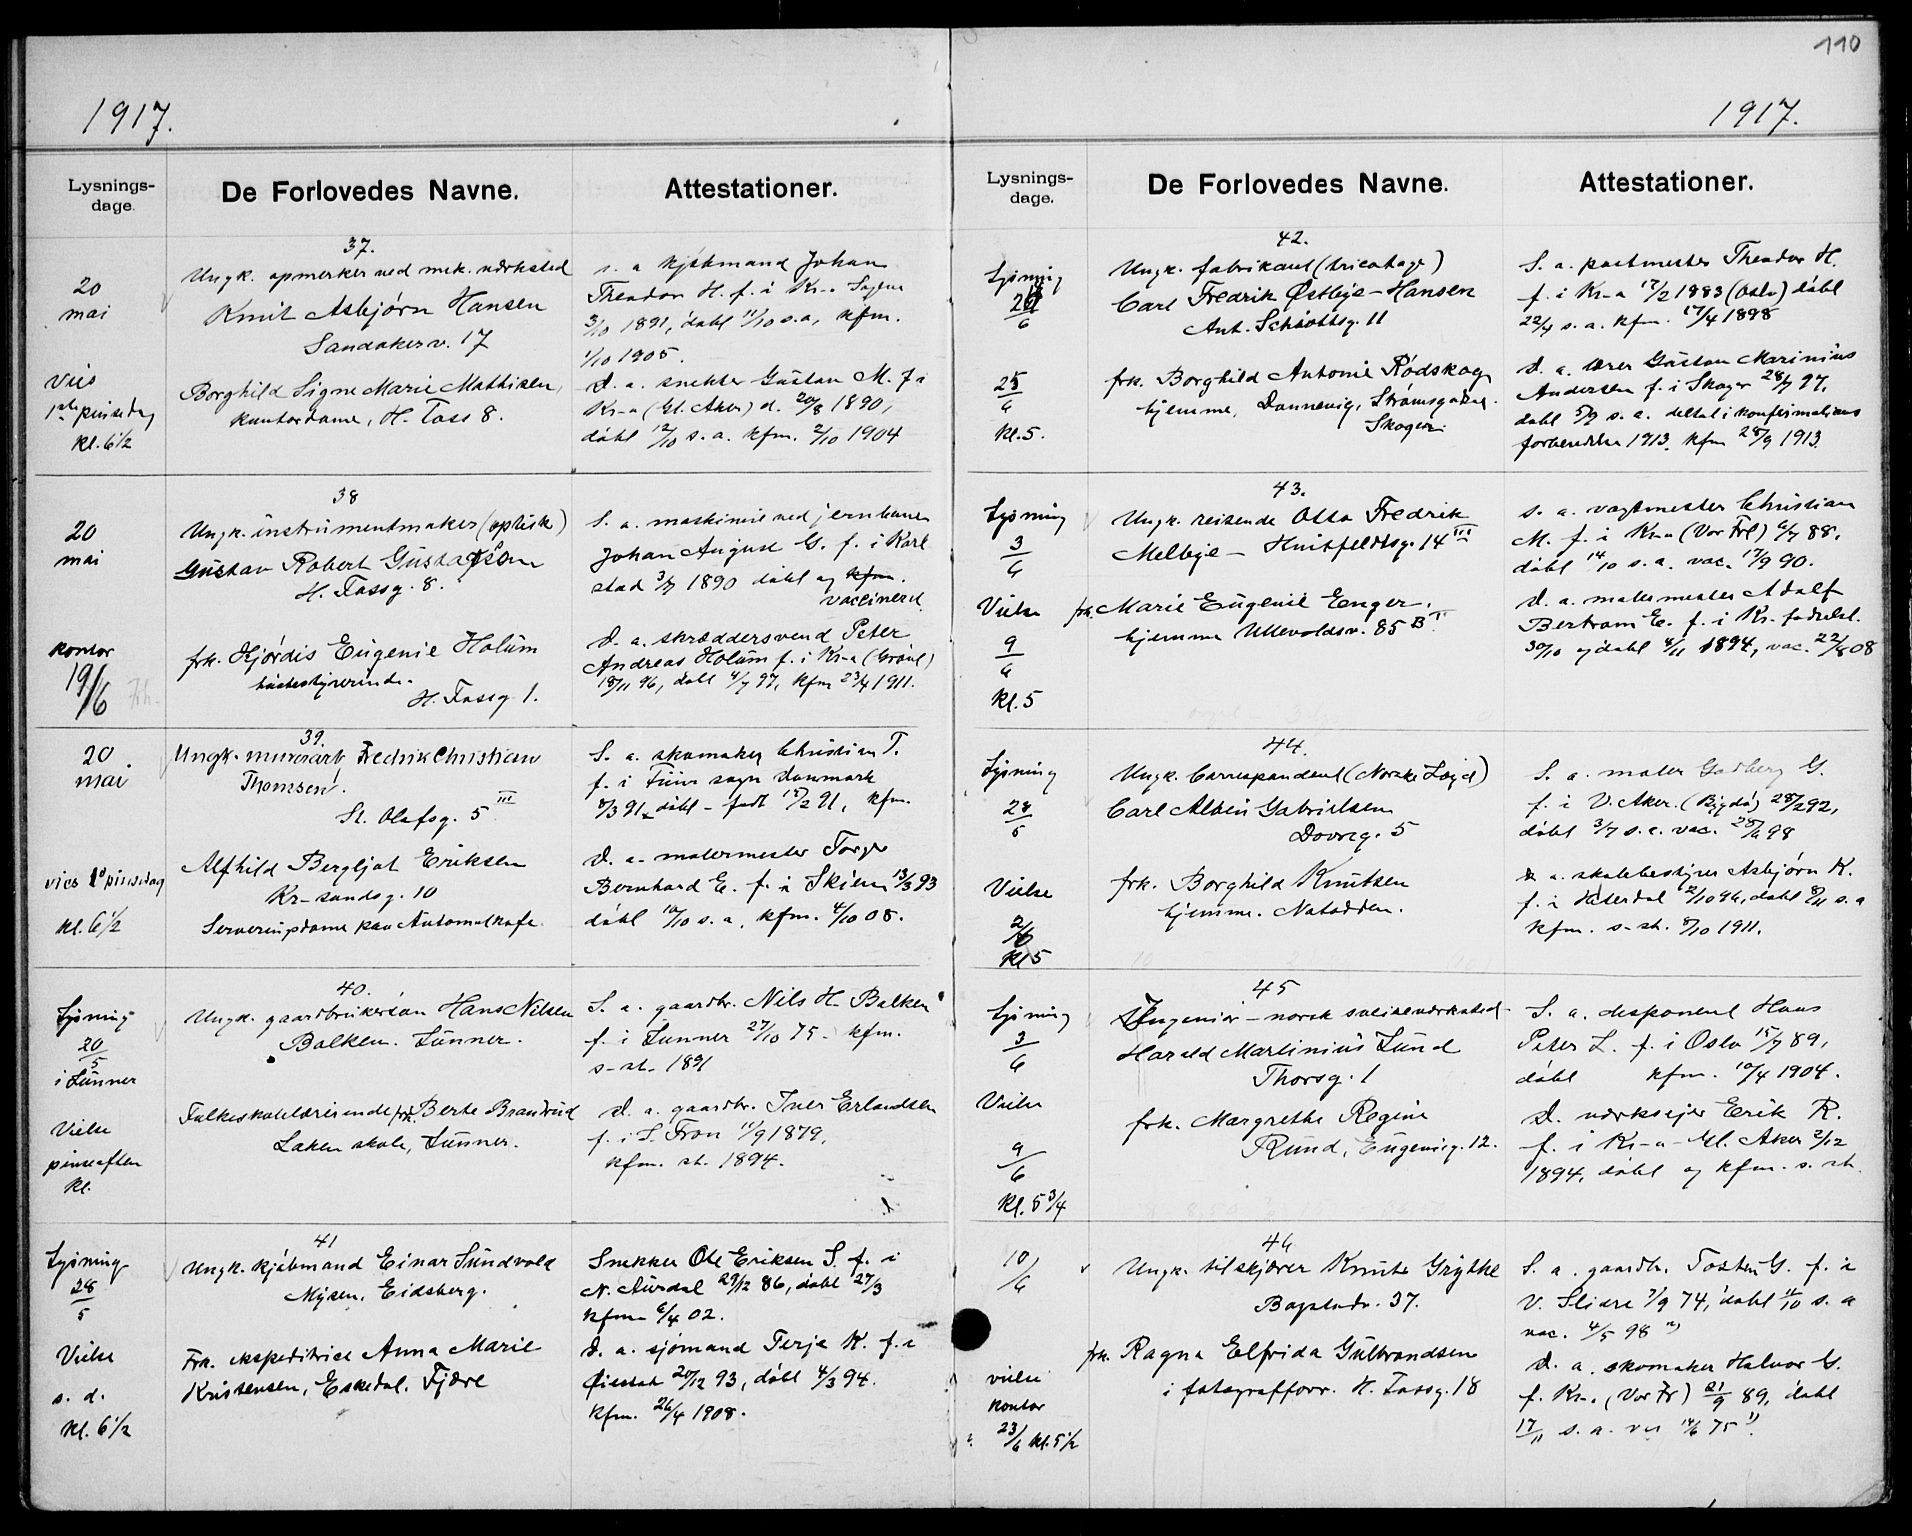 110
1917.
Lysnings-
dage.
De Forlovedes Navne.
Attestationer.
37.
20
mai
Ungk. opmerker ved mek. værksted
Knut Asbjørn Hansen
Sandakerv. 17
s. a kjøbmand Johan
Theodor H. f. i Kr-a
3/10 1891, døbt 11/10 s.a, kfm.
1/10 1905.
vies
1ste pinsedag
kl. 6½
Borghild Signe Marie Mathisen,
kontordame, H. Tass 8.
D. a. snekker Gustav M. f i
Kr-a (Gl. Aker) d. 20/8 1890,
døbt 12/10 s. a. kfm. 2/10 1904
38
20
mai
Ungk. instrumentmaker (optisk)
Gustav Robert Gustafson
H. Tassg. 8.
S. a. maskinist ved jernbanen
Johan August G. f. i Karl
stad 3/7 1890 døbt og kfm.
vaccineret
kontor
19/6
frk. Hjørdis Eugenie Holum
husbestyrerinde.
H. Tassg 1.
D. a. skræddersvend Peter
Andreas Holum f. i Kr-a (Grønl)
18/11 96, døbt 4/7 97, kfm 23/4 1911.
39.
20
mai
Ungk. murerarb. Fredrik Christian
Thomsen.
St. Olafsg. 5 III
S. a. skomaker Christian T.
f. i sogn Danmark
8/3 91 døbt - født 15/2 91, kfm.
vies 1ste pinsedag
kl. 6½
Alfhild Bergljot Eriksen
Kr-sandsg. 10
Serveringsdame paa Automatkafe
D. a. malermester Torger
Bernhard E. f. i Skien 13/3 93
døbt 10/10 s. a, kfm. 4/10 08.
40.
Lysning
20/5
i Lunner
Ungk. gaardbrukersøn Hans Nilsen
Balken. Lunner.
S. a. gaardbr. Nils H. Balken
f. i Lunner 27/10 75. kfm.
s-st. 1891
Vielse
pinseaften
kl.
Folkeskolelærerinde frk. Berte Brandrud
Laken skole, Lunner.
D. a. gaardbr. Iver Erlandsen
f. i S. Fron 11/9 1879,
kfm. st. 1894.
41
Lysning
28/5
Ungk. kjøbmand Einar Sundvold
Mysen, Eidsberg.
Snekker Ole Eriksen S. f. i
N. Aurdal 29/12 86, døbt 27/3
kfm 6/4 02.
Vielse
s. d.
kl. 6½
Frk. ekspeditrice Anna Marie
Kristensen, Eskedal, Fjære
D. a. sjømand Terje K. f. i
Øiestad 20/12 93, døbt 4/3 94.
kfm. 26/4 1908.
1917.
Lysnings-
dage.
De Forlovedes Navne.
Attestationer.
42.
Lysning
6
Ungk. fabrikant (tricotage)
Carl Fredrik Østbye-Hansen
Ant. Schiøttsg. 11
S. a. postmester Theodor H.
f. i Kr-a 12/2 1883 (Oslo) døbt
22/4 s. a. kfm. 17/4 1898
25/6
kl. 5.
frk. Borghild Antonie Rødskog
hjemme, Dannevig, Strømsgodset
Skoger
D. a. Gustav Marinius
Andersen f. i Skoger 28/7 97,
døbt 5/9 s. a. deltat i konfirmations
forberedelse 1913. kfm 28/9 1913.
43.
Lysning
3/6
Ungk. reisende Otto Fredrik
Melbye - Huitfeldtsg. 14 III
s. a. vagtmester Christian
M. f. i Kr-a (Vor Frl) 6/7 88,
døbt 14/10 s. a. vac. 17/9 90.
Vielse
9/6
kl. 5
frk. Marie Eugenie Enger.
hjemme Ullevoldsv. 85 B II
D. a. malermester Adolf
Bertram E. f. i Kr. fødselst.
30/10 og døbt 4/11 1894, vac. 22/8 08
44.
Lysning
28/5
Ungk. Correspondent (Norske Lloyd)
Carl Alvin Gabrielsen
Dovreg. 5
S. a. maler Gadberg G.
f. i V. Aker. (Bygdø) 28/2 92,
døbt 3/7 s. a. vac. 25/6 98
Vielse
2/6
kl 5
frk. Borghild Knutsen
hjemme. Notodden.
D. a. skolebestyrer Asbjørn K.
f. i Hiterdal 2/10 96, døbt 8/11 s. a
kfm. s-st. 8/10 1911.
45
Lysning
3/6
Ingeniør - norsk
Harald Martinius Lund
Thorsg. 1
S. a. disponent Hans
Peter L. f. i Oslo 15/7 89,
døbt kfm. 10/4 1904.
Vielse
9/6
kl. 5 3/4
frk. Margrethe Regine
Rund, Eugeniesg. 12.
D. værkseier Erik R.
f. i Kr-a - Gl. Aker 2/12
1894, døbt og kfm. s. st.
46
10/6
Ungk. tilskjærer Knut Grythe
Bogstadv. 37.
S. a. gaardbr. Tosten G. f. i
V. Slidre 7/9 74, døbt 11/10 s. a
vac. 4/5 98
vielse
kontor
23/6 kl. 5½
frk. Ragna Elfrida Gulbrandsen
i fotografforr. H. Tassg. 18
D. a. skomaker Halvor G.
f. Kr-a (Vor Fr) 21/9 89, døbt
17/11 s. a. vac 14/6 75